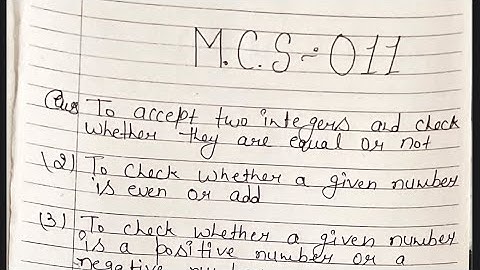 M.C.S-011
To accept two integers and check
whether they are equal or not
(2) To check whether a given number
is even or add
(3) To check whether a given number
is a positive number or a
negative